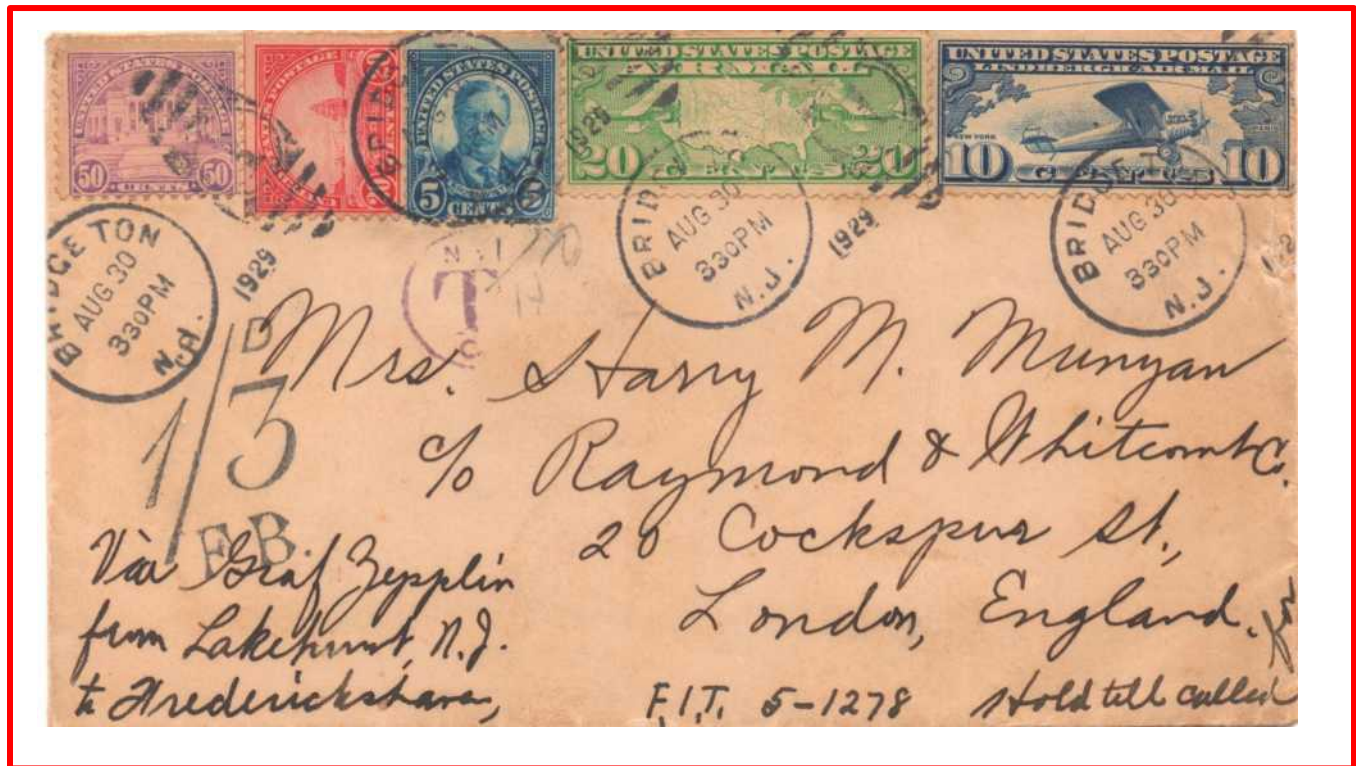 UNITED STATES POSTAGE
50 CENTS 50
UNITED STATES POSTAGE
5 CENTS 5
UNITED STATES POSTAGE
AIR MAIL
20 CENTS 20
UNITED STATES POSTAGE
LINDBERGH AIR MAIL
NEW YORK PARIS
10 CENTS 10
BRIDGETON
AUG 30
330PM
N.J.
1929
BRIDGETON
AUG 30
330PM
N.J.
1929
BRIDGETON
AUG 30
330PM
N.J.
N.Y.
T
1/3
D
F.B.
Mrs. Harry M. Munyan
c/o Raymond & Whitcomb Co.
20 Cockspur St.,
London, England.
Via Graf Zepplin
from Lakehurst, N.J.
to
F.I.T. 5-1278
Hold till called